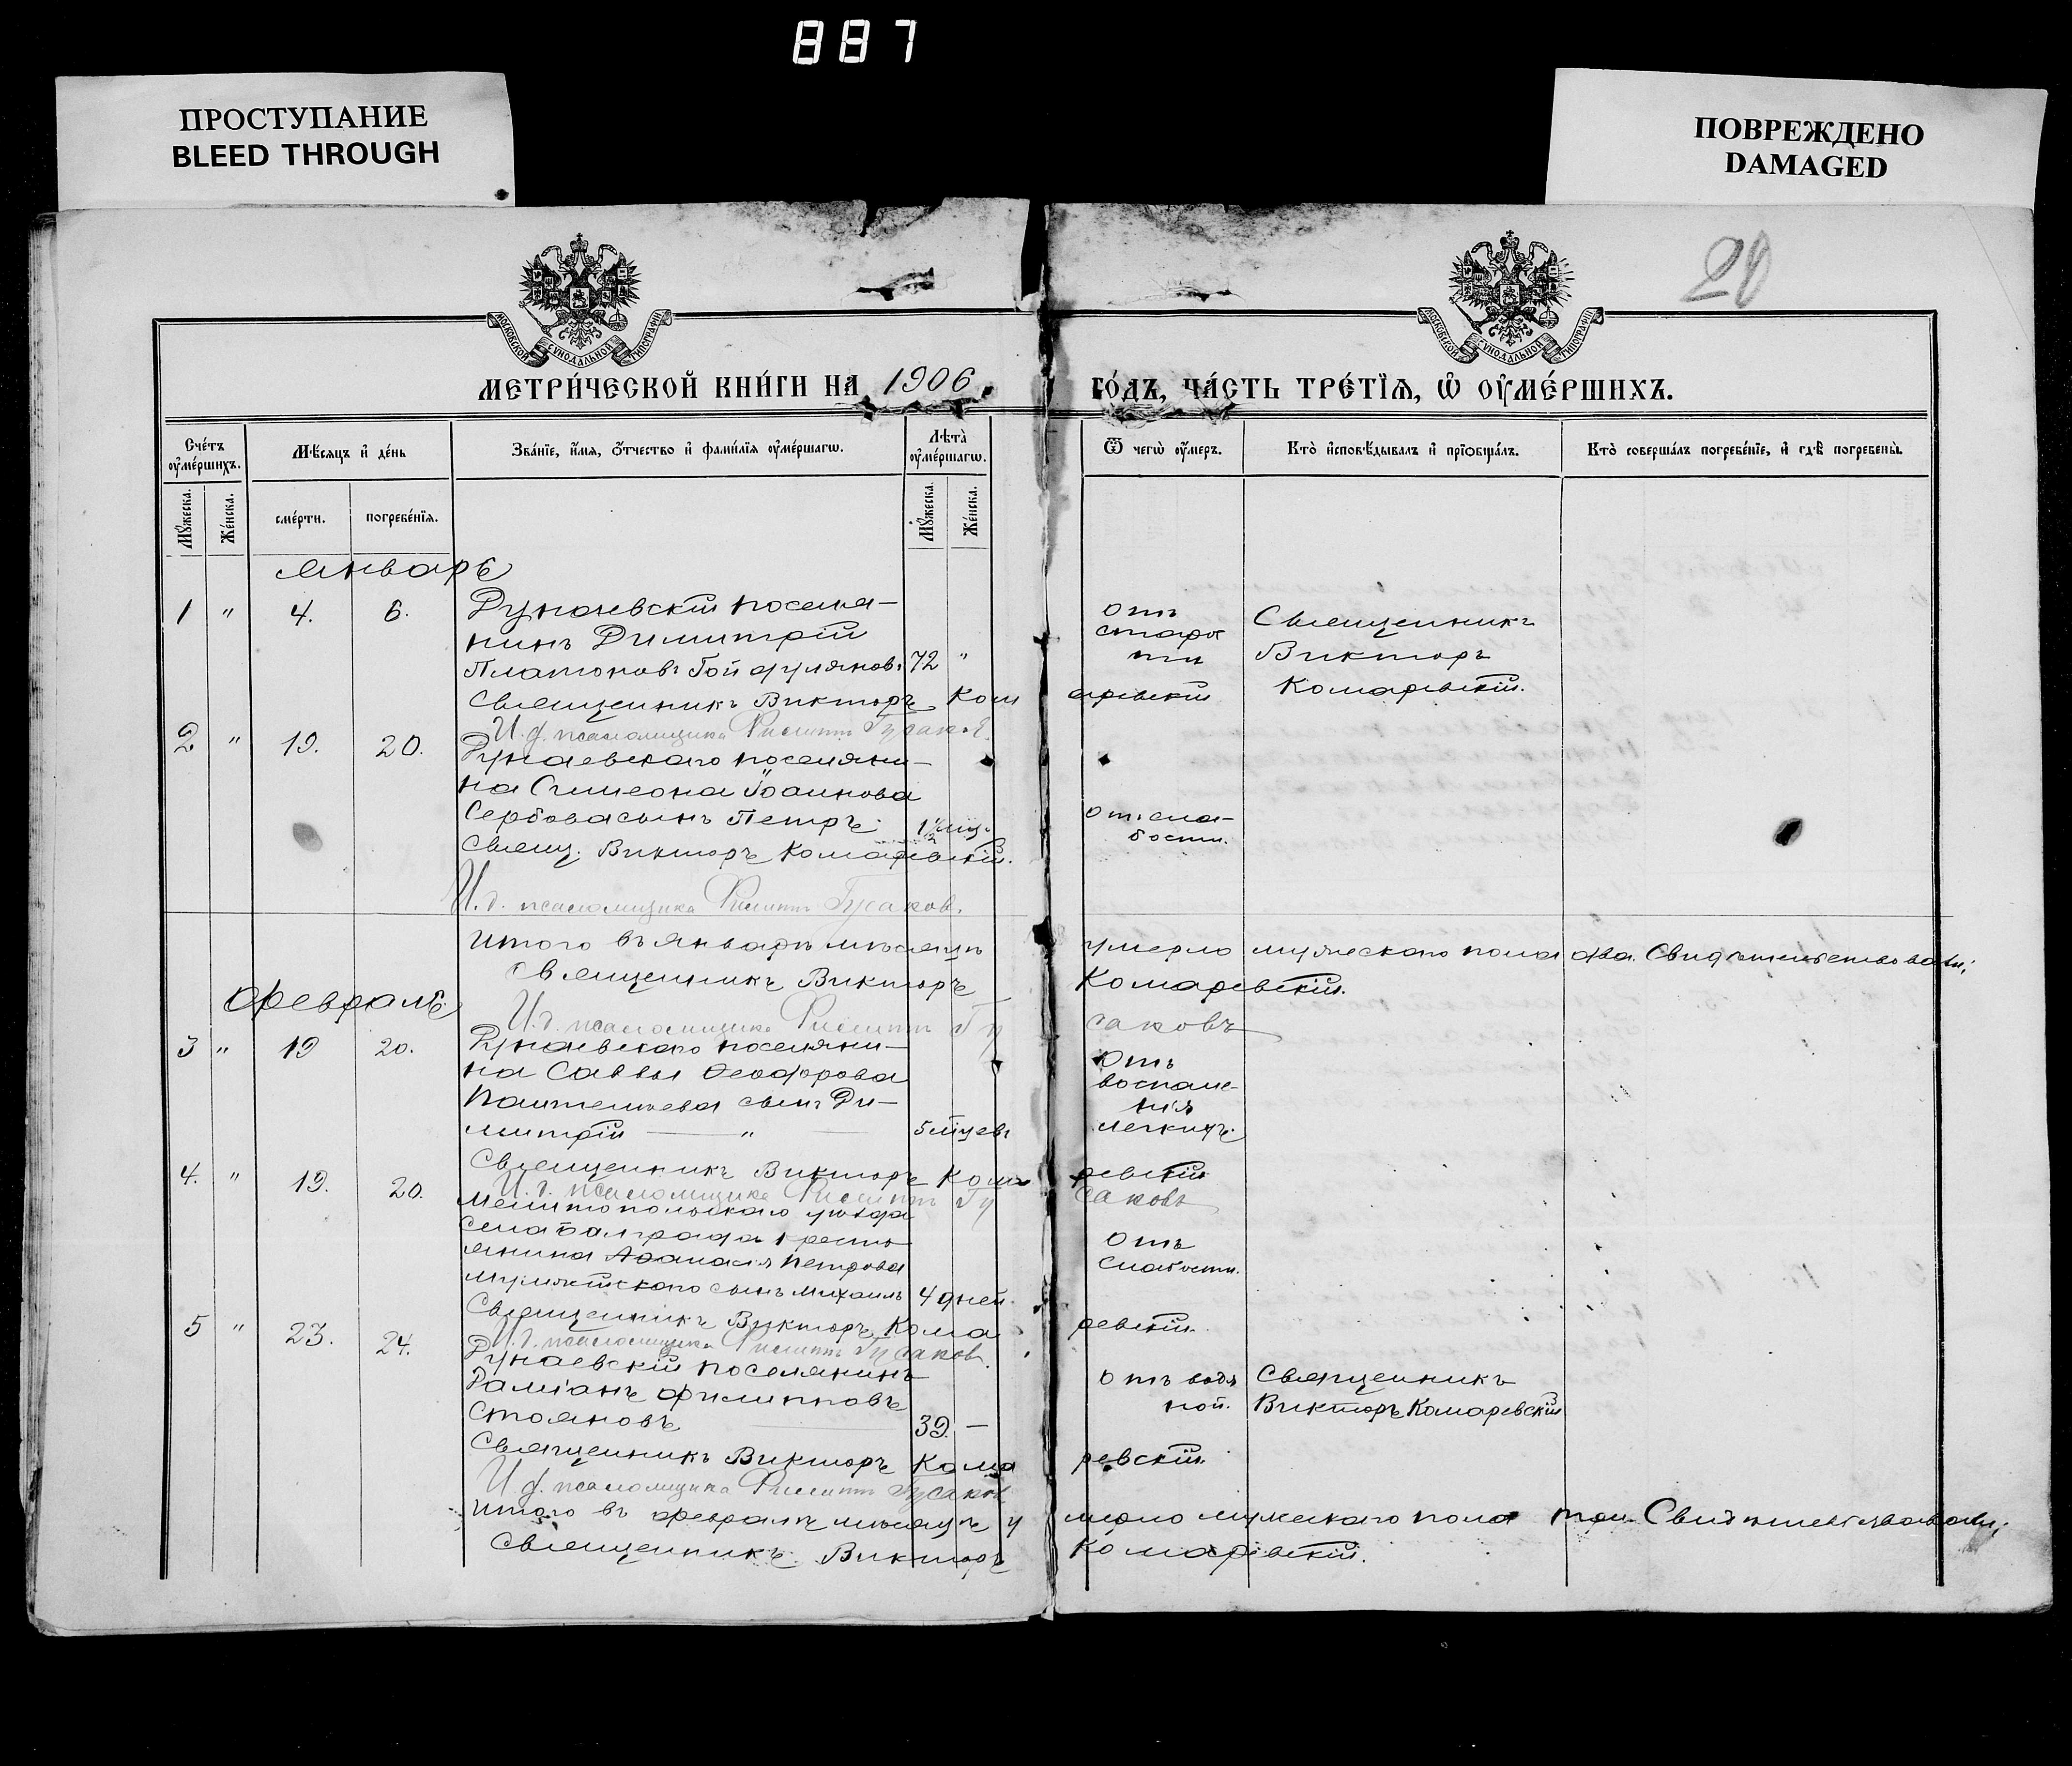 887
ПРОСТУПАНИЕ
BLEED THROUGH
ПОВРЕЖДЕНО
DAMAGED
МОСКОВСКОЙ СУНОДАЛЬНОЙ ТИПОГРАФІИ
МОСКОВСКОЙ СУНОДАЛЬНОЙ ТИПОГРАФІИ
МЕТРИ́ЧЕСКОЙ КНИ́ГИ НА 1906
ГО́ДЪ, ЧА́СТЬ ТРЕ́ТЇѦ, Ѡ҆ ОУ҆МЕ́РШИХЪ.
Сче́тъ оу҆ме́ршихъ.
Мѣ́сяцъ и҆ де́нь
Зва́нїе, и҆́мѧ, ѻ҆́тчество и҆ фами́лїѧ оу҆ме́ршагѡ.
Лѣта̀ оу҆ме́ршагѡ.
Ѿ чегѡ̀ оу҆́меръ.
Кто̀ и҆сповѣ́дывалъ и҆ прїобща́лъ.
Кто̀ соверша́лъ погребе́нїе, и҆ гдѣ̀ погребены̀.
Мꙋ́жеска.
Же́нска.
сме́рти.
погребе́нїѧ.
Мꙋ́жеска.
Же́нска.
Январь
1 " 4. 6. Дунаевскій поселя-
нинъ Димитрій
Платоновъ 72 "
отъ
старос
ти
Священникъ
Викторъ
Комаревскій.
Священникъ Викторъ Кома
ревскій
И. д. псаломщика Филиппъ Гусаковъ.
2 " 19. 20. Дунаевскаго поселяни-
на Симеона Іоаннова
Сербова сынъ Петръ 1½ мѣс.
отъ сла-
бости.
Свящ. Викторъ Комаревскій.
И. д. псаломщика Филиппъ Гусаков.
Итого въ январѣ мѣсяцѣ умерло мужескаго пола два. Свидѣтельствовали;
Священникъ Викторъ Комаревскій.
Февраль
И. д. псаломщика Филиппъ Гусаковъ
3 " 19 20. Дунаевскаго поселяни-
на Саввы Ѳеодорова
сынъ Ди-
митрій — " —
Отъ
воспале-
нія
легкихъ.
Священникъ Викторъ Комаревскій
И. д. псаломщика Филиппъ Гусаковъ
4. " 19. 20. Мелитопольскаго уѣзда
села кресть
янина Аѳанасія Петрова
сынъ Михаилъ 4 дней.
Отъ
слабости.
Священникъ Викторъ Комаревскій.
И. д. псаломщика Филиппъ Гусаков.
5 " 23. 24. Дунаевскій поселянинъ
Даміанъ Филипповъ
Стояновъ 39. —
Отъ водя
ной.
Священникъ
Викторъ Комаревскій
Священникъ Викторъ Комаревскій
И. д. псаломщика Филиппъ Гусаков
Итого въ февралѣ мѣсяцѣ умерло мужескаго пола три. Свидѣтельствовали;
Священникъ Викторъ Комаревскій.